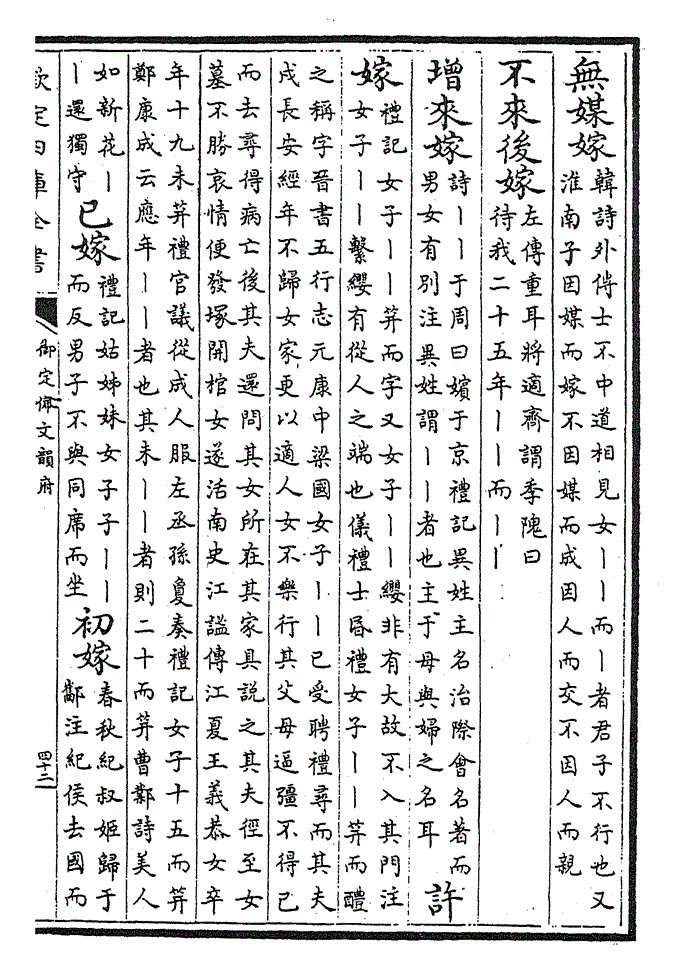 無媒嫁
韓詩外傳士不中道相見女丨丨而丨者君子不行也又
淮南子因媒而嫁不因媒而成因人而交不因人而親
不來後嫁
左傳重耳將適齊謂季隗曰
待我二十五年丨丨而丨丨
增來嫁
詩丨丨于周曰嬪于京禮記異姓主名治際會名著而
男女有別注異姓謂丨丨者也主于母與婦之名耳
許
嫁
禮記女子丨丨笄而字又女子丨丨纓非有大故不入其門注
女子丨丨繫纓有從人之端也儀禮士昏禮女子丨丨笄而醴
之稱字晉書五行志元康中梁國女子丨丨已受聘禮尋而其夫
戍長安經年不歸女家更以適人女不樂行其父母逼彊不得已
而去尋得病亡後其夫還問其女所在其家具說之其夫徑至女
墓不勝哀情便發塚開棺女遂活南史江謐傳江夏王義恭女卒
年十九未笄禮官議從成人服左丞孫夐奏禮記女子十五而笄
鄭康成云應年丨丨者也其未丨丨者則二十而笄曹鄴詩美人
如新花丨
丨還獨守
已嫁
禮記姑姊妹女子子丨丨
而反男子不與同席而坐
初嫁
春秋紀叔姬歸于
酅注紀侯去國而
欽定四庫全書
御定佩文韻府
四十二